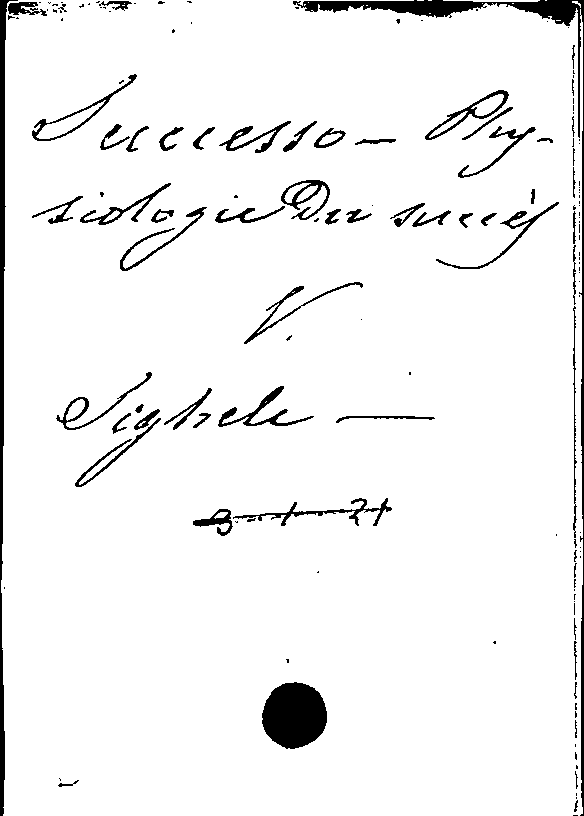 Successo — Phy-
siologie Du succès
V.
Sighele —
3-1-21